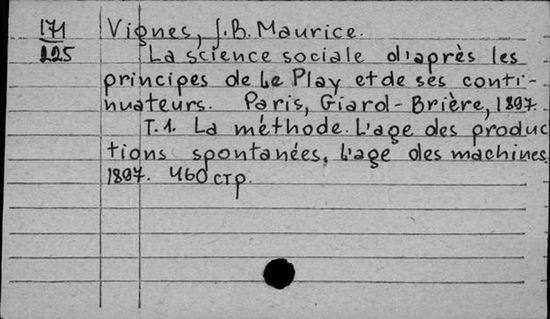 171 Vignes, J.B. Maurice.
225 La science sociale d'après les
principes de Le Play et de ses conti-
nuateurs. Paris, Giard-Brière, 1897.
T.1. La méthode. L'age des produc
tions spontanées. L'age des machines
1897. 460 стр.